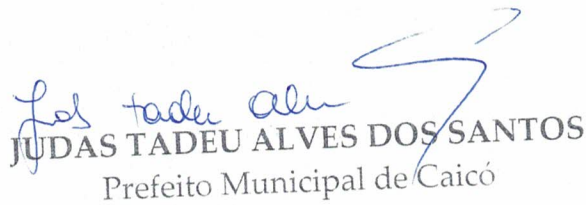 JUDAS TADEU ALVES DOS SANTOS
Prefeito Municipal de Caicó